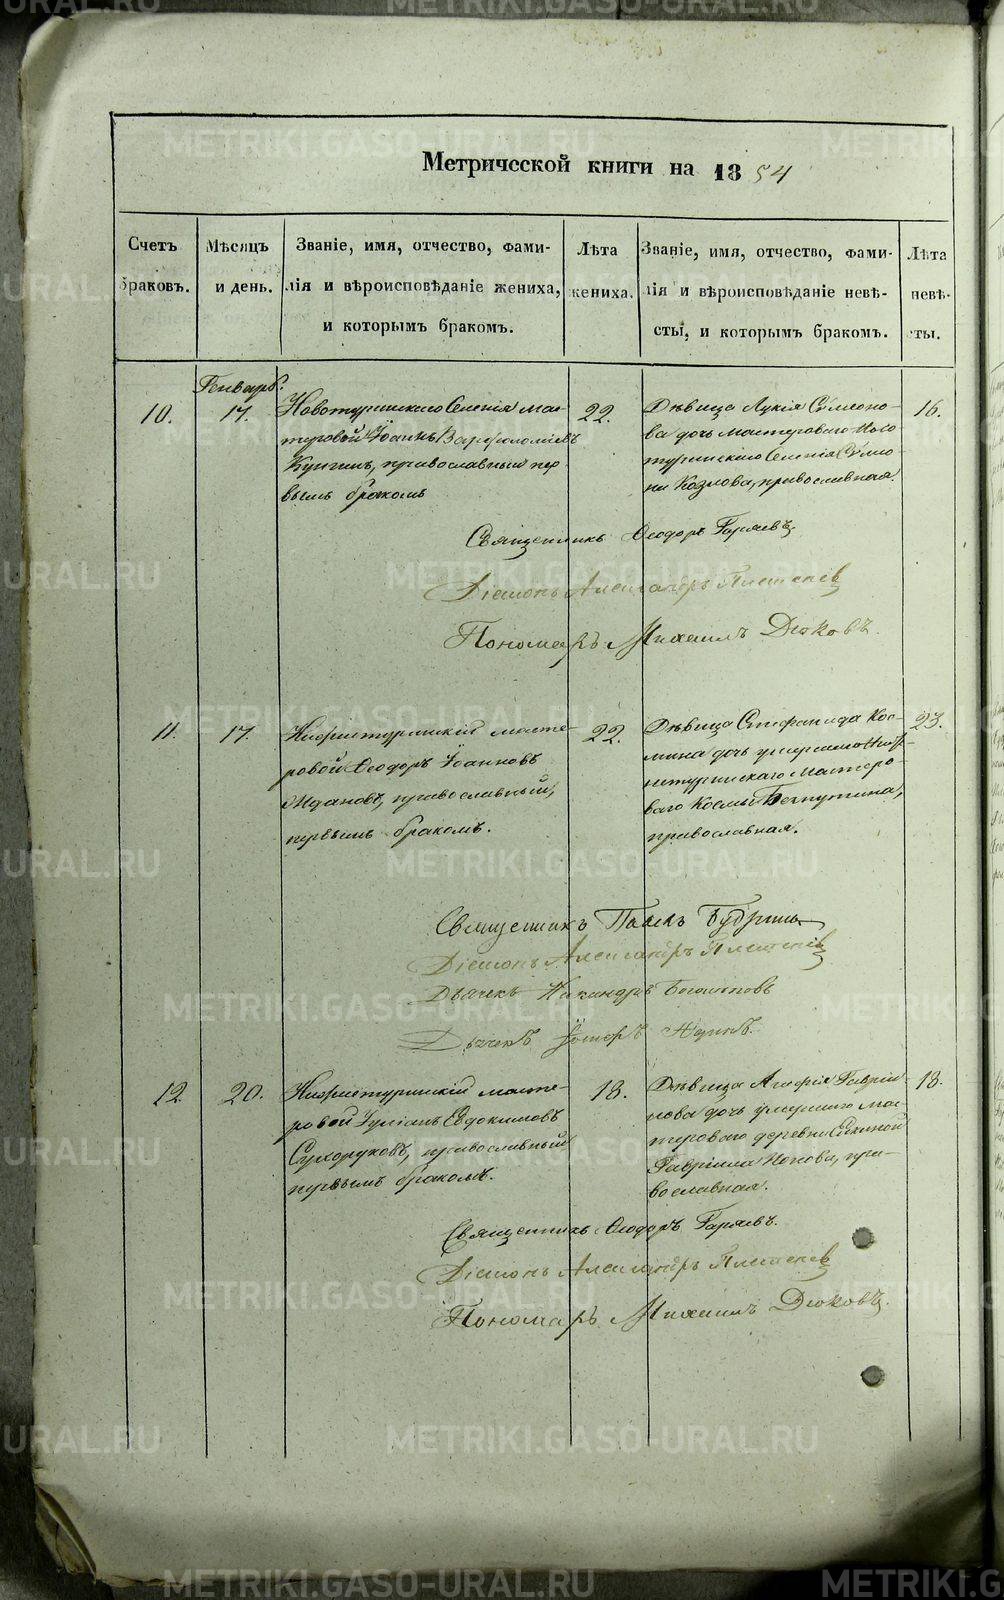 METRIKI.GASO-URAL.RU
Метрической книги на 1854
Счетъ браковъ.
Мѣсяцъ и день.
Званіе, имя, отчество, фами-
лія и вѣроисповѣданіе жениха,
и которымъ бракомъ.
Лѣта
жениха.
Званіе, имя, отчество, фами-
лія и вѣроисповѣданіе невѣ-
сты, и которымъ бракомъ.
Лѣта
невѣ-
сты.
Генварь.
10.
17.
Новотуринскаго Селенія мас-
теровой Іоаннъ Варфоломѣевъ
православный пер-
вымъ бракомъ
22.
Дѣвица Лукія Сѵмеоно-
ва дочь мастероваго Ново-
туринскаго Селенія Сѵмео-
на Козлова, православная.
16.
Священникъ Ѳеодоръ Гаряевъ
Діаконъ Александръ
Пономарь Михаилъ Дюковъ.
11.
17.
Нижнетуринскій масте-
ровой Ѳеодоръ Іоанновъ
Ждановъ, православный,
первымъ бракомъ.
22.
Дѣвица Стефанида Кос-
мина дочь умершаго Ниж-
нетуринскаго Мастеро-
ваго Космы
православная.
23.
Священникъ Павелъ Будринъ
Діаконъ Александръ
Дьячекъ Никандръ
Дьячекъ
12.
20.
Нижнетуринскій масте-
ровой Іуліанъ Евдокимовъ
Сухоруковъ, православный
первымъ бракомъ.
18.
Дѣвица Агафія Гаврії-
лова дочь умершаго мас-
тероваго деревни Елкиной
Гавріила Попова, пра-
вославная.
18.
Священникъ Ѳеодоръ Гаряевъ.
Діаконъ Александръ
Пономарь Михаилъ Дюковъ.